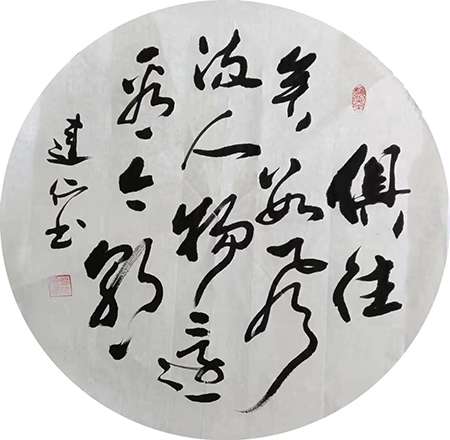 俱往
矣数风
流人物还
看今朝
仁书